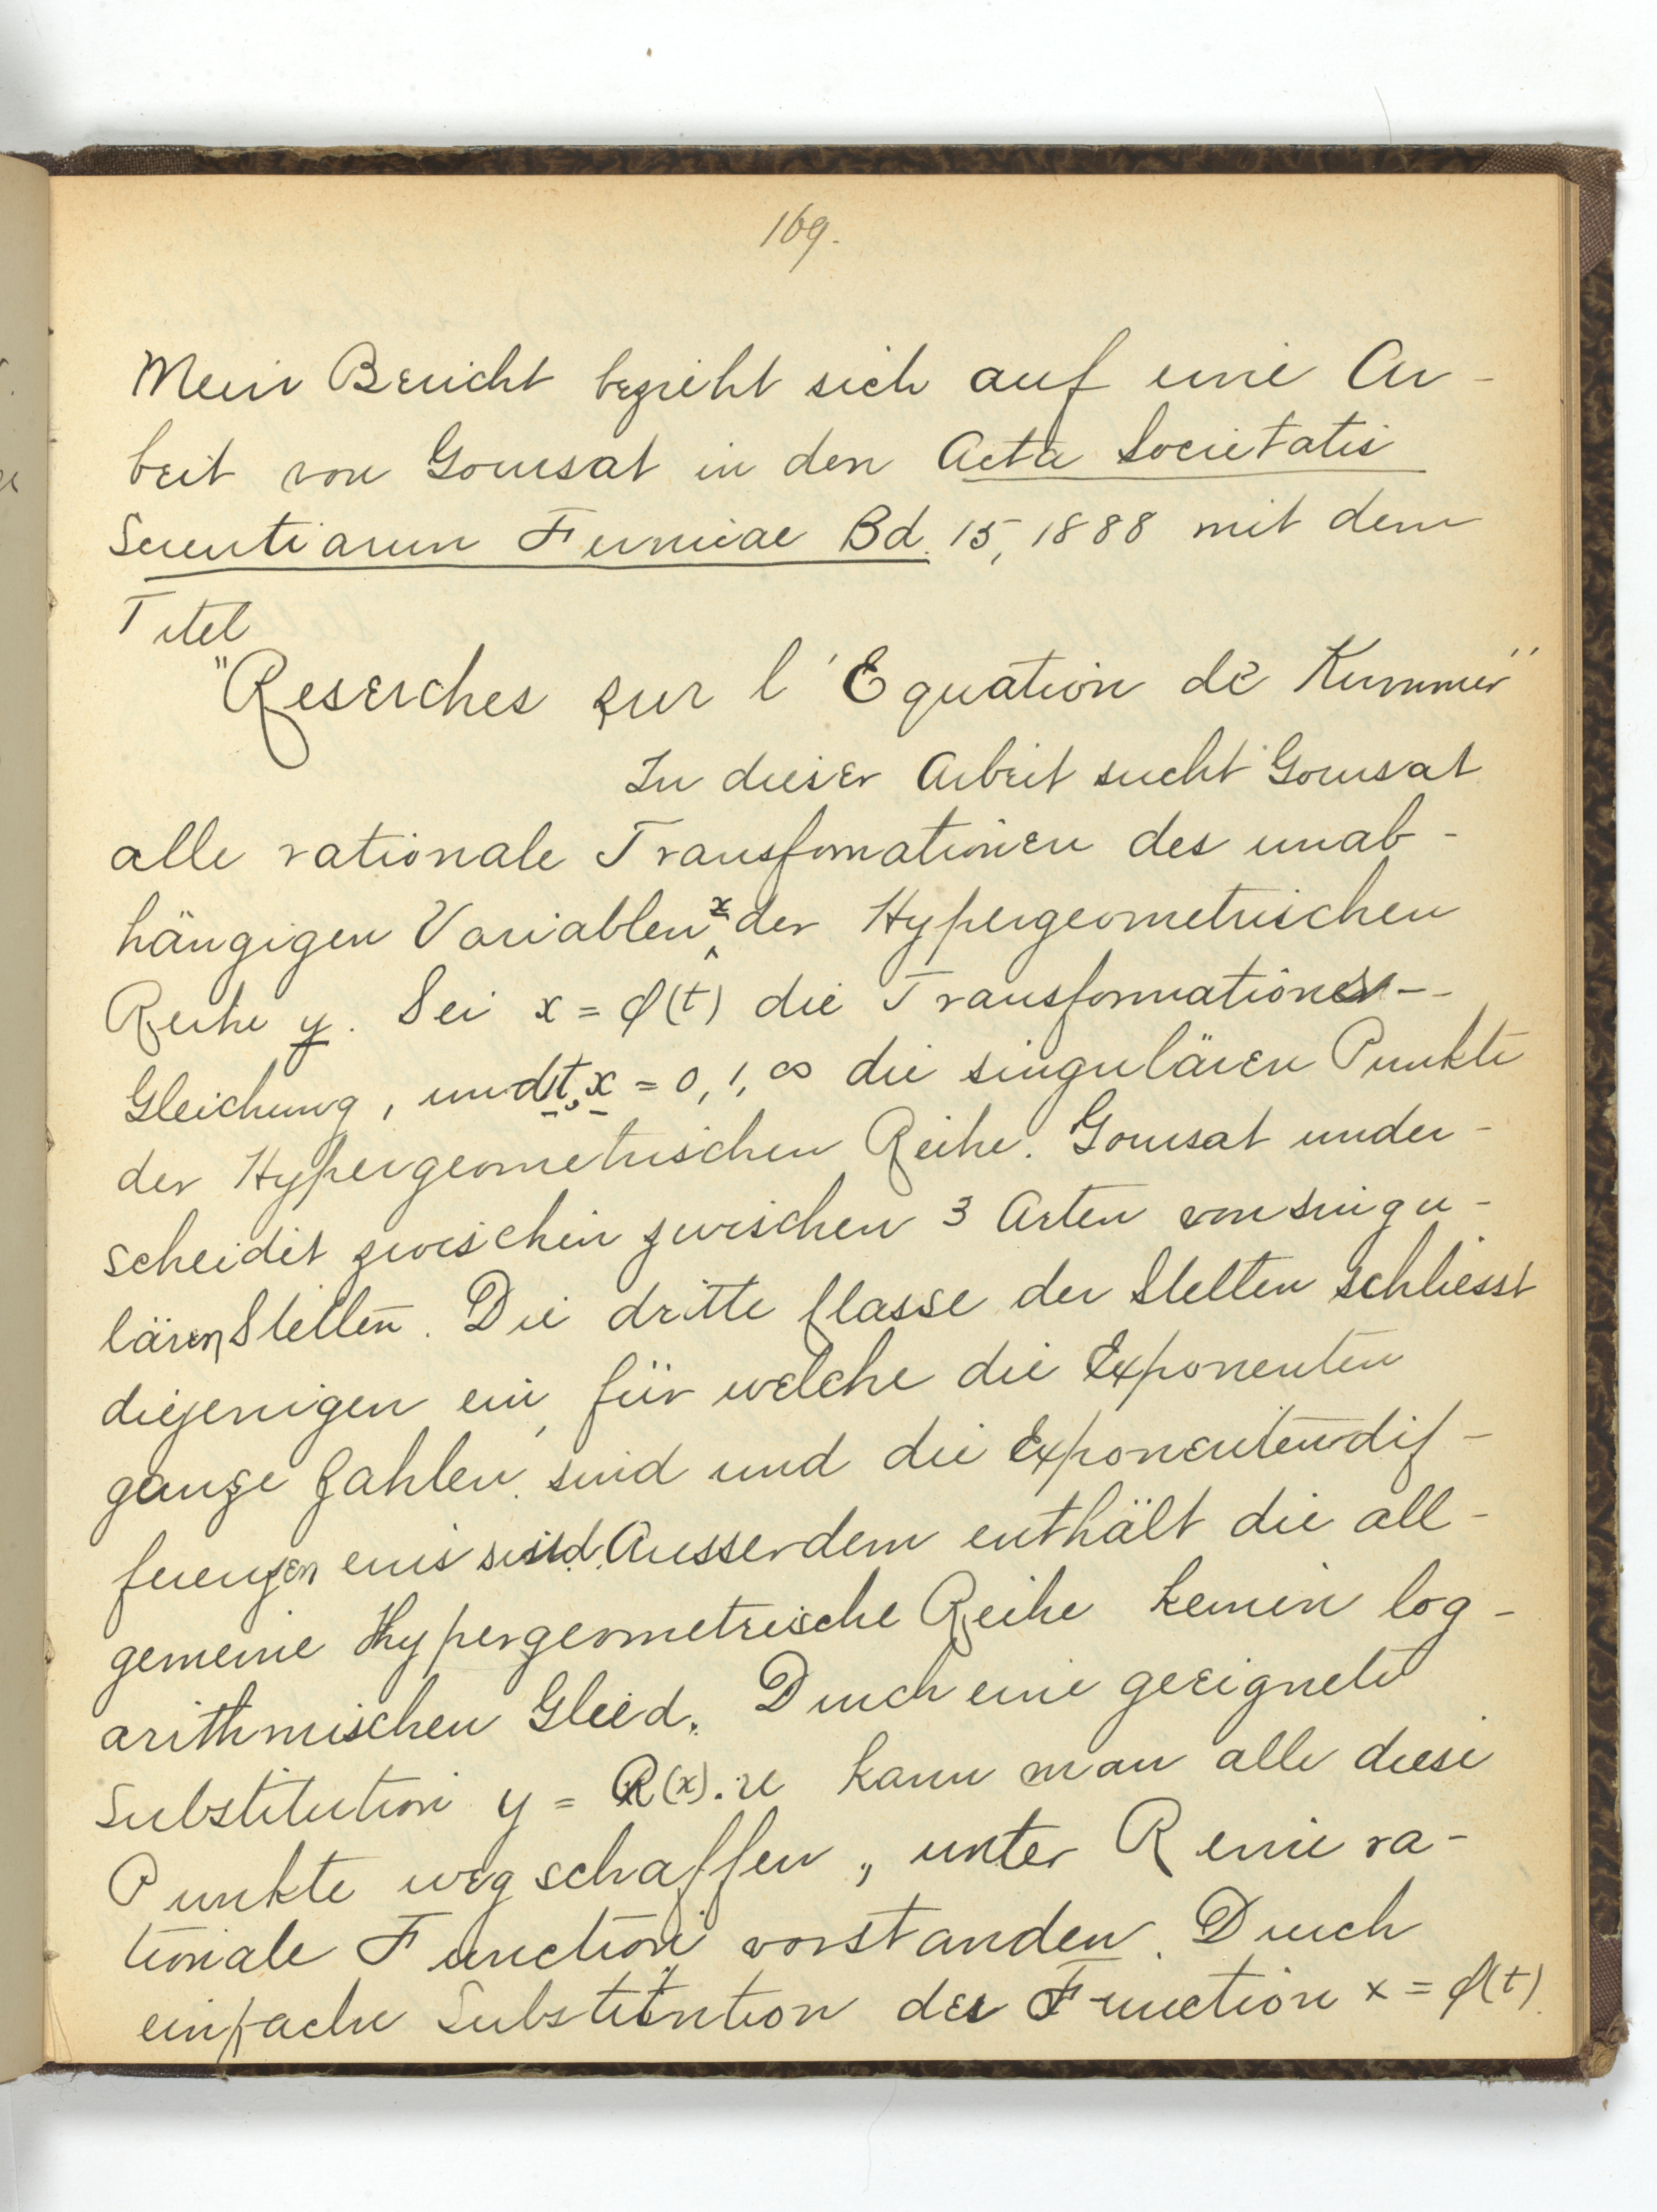 169.
Mein Bericht bezieht sich auf eine Ar-
beit von Goursat in den Acta Societatis
Scientiarum Fennicae Bd. 15, 1888 mit dem
Titel
"Reserches sur l'Equation de Kummer"
In dieser Arbeit sucht Goursat
alle rationale Transfomationen des unab-
hängigen Variablen x der Hypergeometrischen
Reihe y. Sei x = φ(t) die Transformations-
Gleichung, und t, x = 0, 1, ∞ die singulären Punkte
der Hypergeometrischen Reihe. Goursat under-
scheidet zwischen zwischen 3 Arten von singu-
lären Stellen. Die dritte Classe der Stellen schliesst
diejenigen ein, für welche die Exponenten
ganze Zahlen sind und die Exponentendif-
ferenzen eins sind. Ausserdem enthält die all-
gemeine Hypergeometrische Reihe keinen log-
arithmischen Glied. Durch eine geeignete
Substitution y = R(x).u kann man alle diese
Punkte wegschaffen, unter R eine ra-
tionale Function vorstanden. Durch
einfache Substitution der Function x = φ(t)